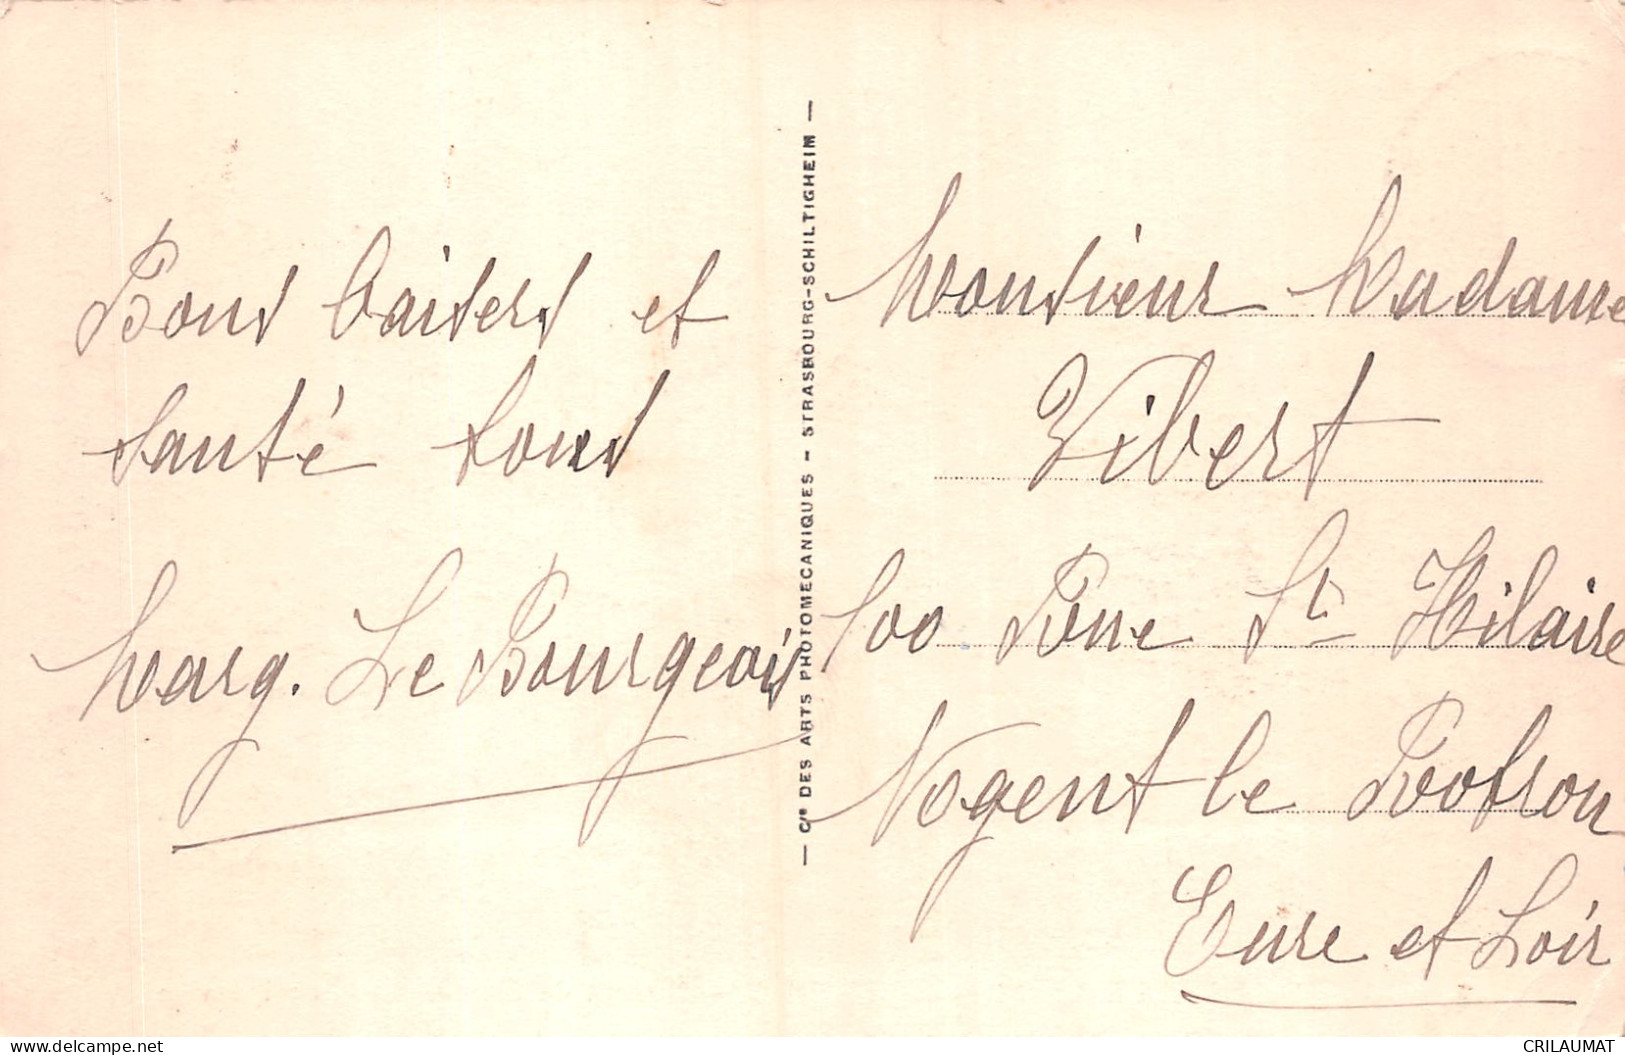 Bons baisers et
santé tous
Marg. Le Bourgeois
— Cie DES ARTS PHOTOMECANIQUES - STRASBOURG-SCHILTIGHEIM —
Monsieur Madame
Vibert
100 Rue St Hilaire
Nogent le Rotrou
Eure et Loir
CRILAUMAT
delcampe.net